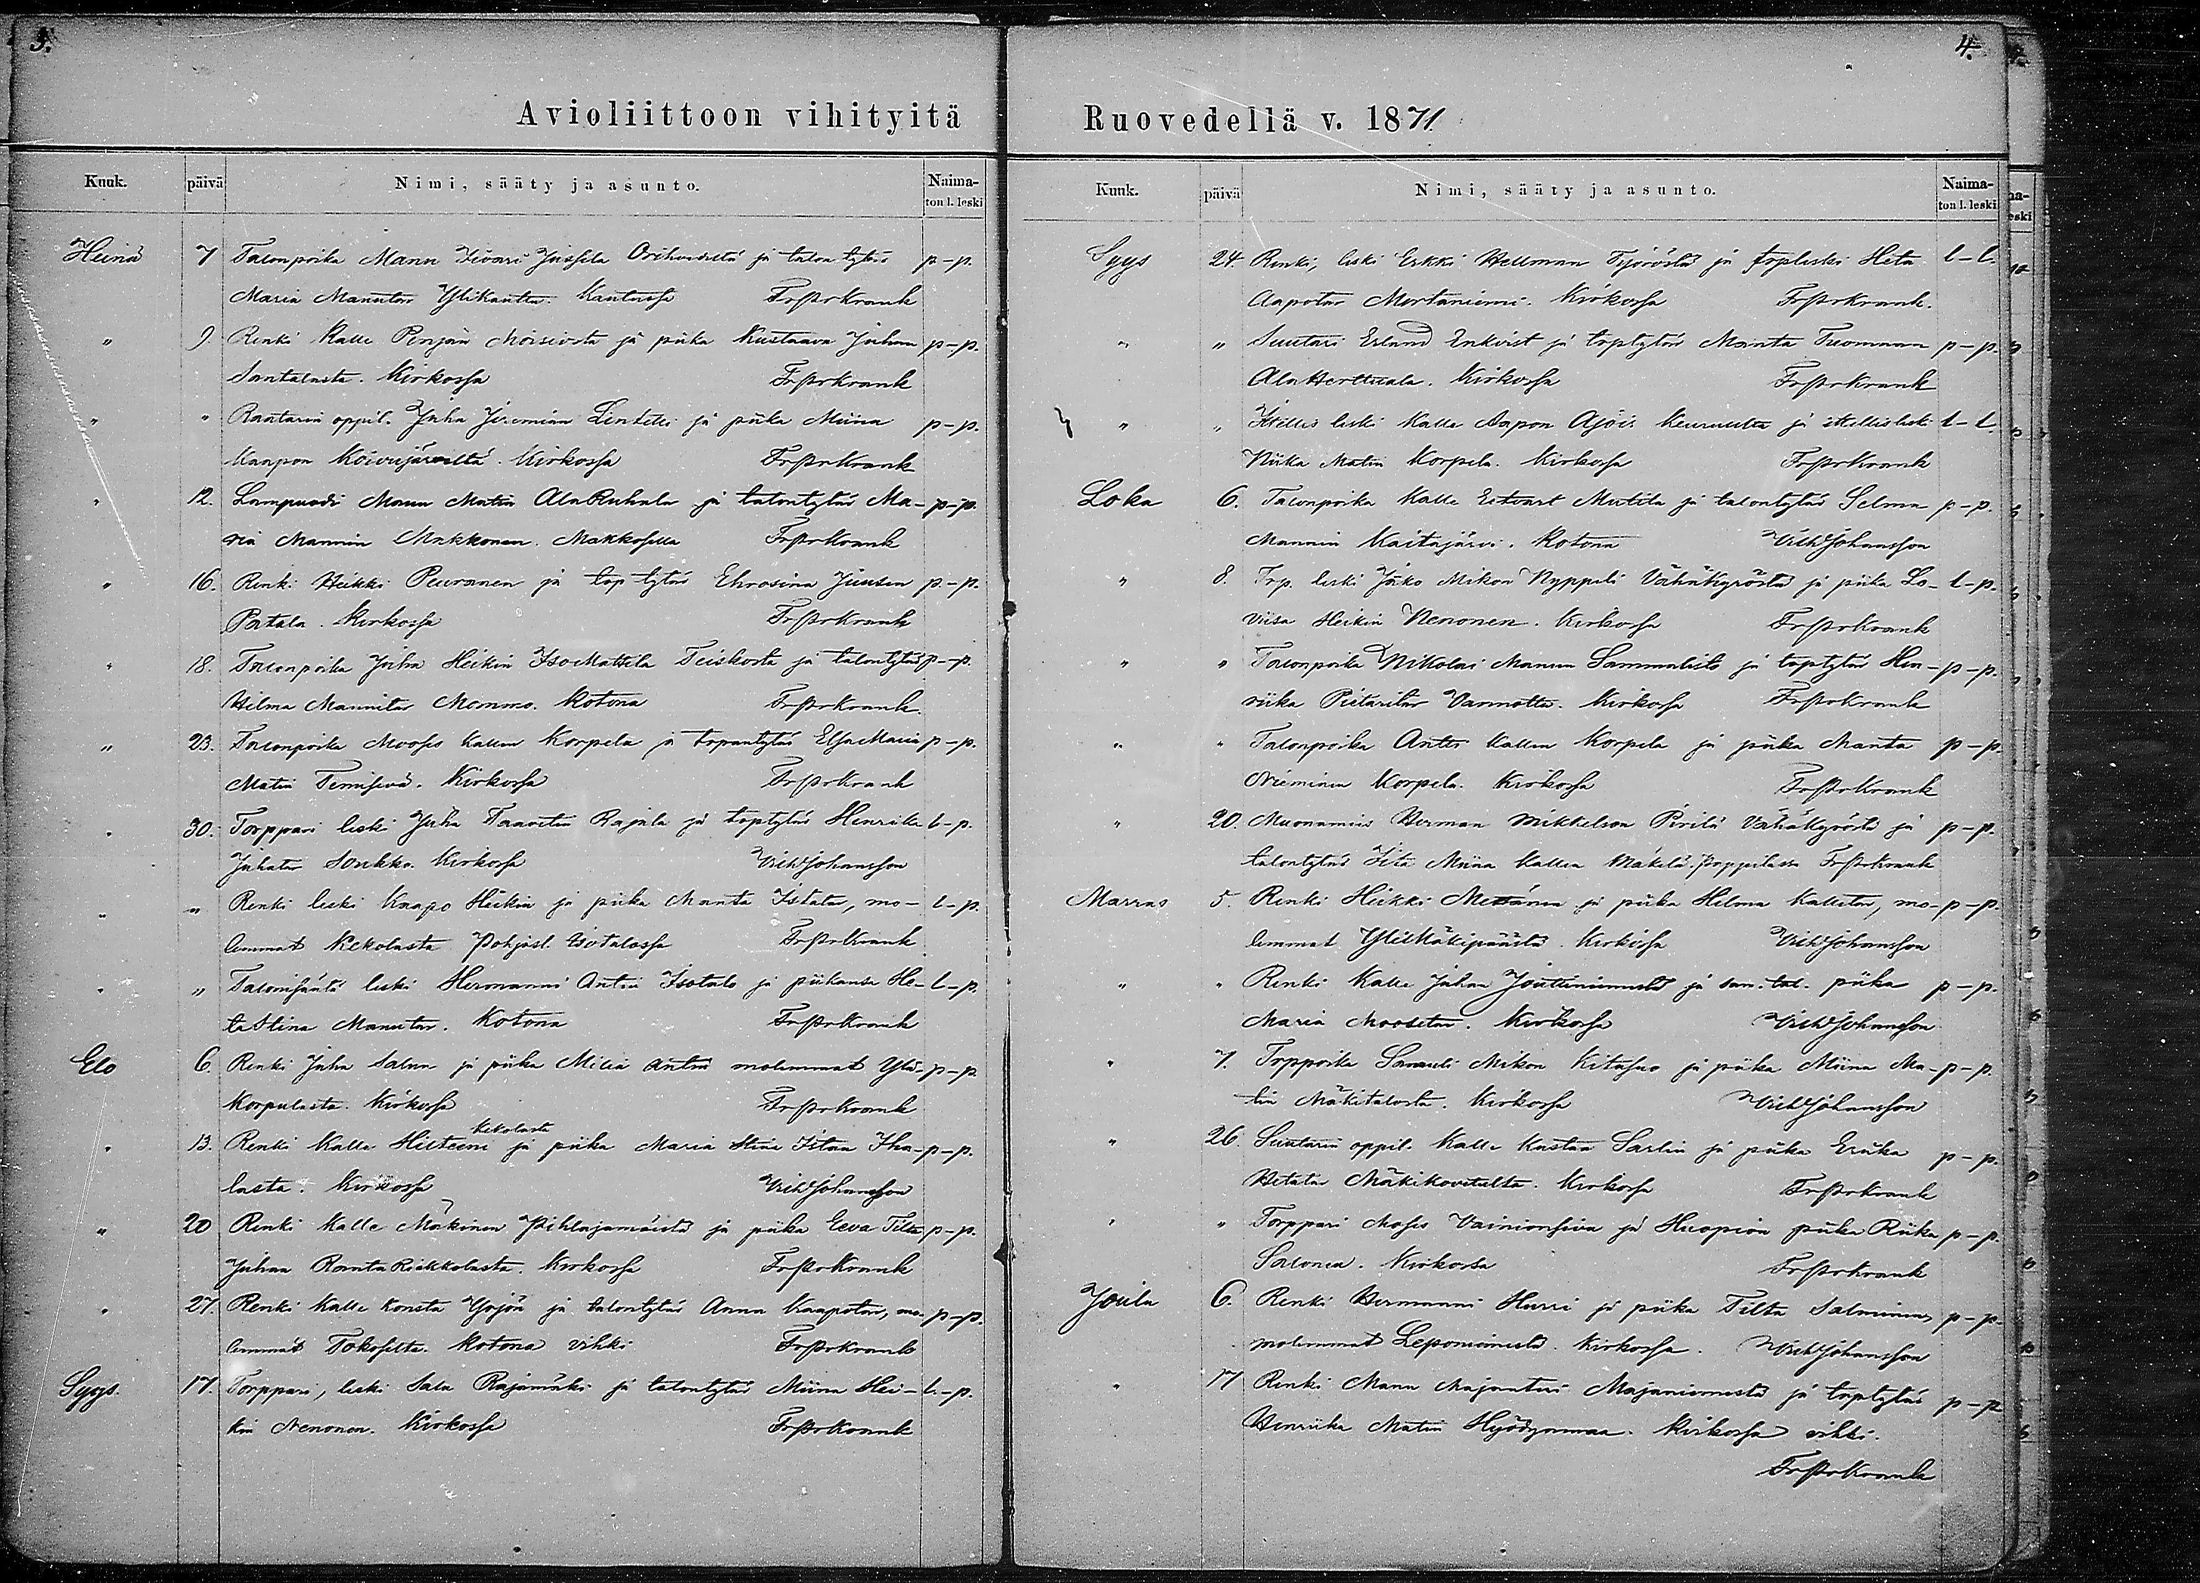 3.
Avioliittoon vihityitä
Kuuk. päivä Nimi, sääty ja asunto. Naima-
ton l. leski
Heinä 7 Talonpoika Manu Iivari Jussila Orihvedeltä ja talon tytär p-p.
Maria Manutar Ylikautta. Kautussa FrPrKrank
" 9. Renki Kalle Penjän ja piika Kustaava Juhan p-p.
Santalasta. Kirkossa FrPrKrank
" " Räätärin oppil. Juha Jeremian Lindelli ja piika Miina p-p.
Kaapon Koivujärveltä. Kirkossa FrPrKrank
" 12. Lampuodi Manu Matin AlaRuhala ja talontytär Ma- p-p.
ria Mannin Makkonen. Makkosella FrPrKrank
" 16. Renki Heikki Peuranen ja torp tytär Ehrosina Juusen p-p.
Patala. Kirkossa FrPrKrank
" 18. Talonpoika Juha Heikin IsoMattila Teiskosta ja talontytär p-p.
Hilma Mannitar Mommo. Kotona FrPrKrank.
" 23. Talonpoika Mooses Kallen Korpela ja torpantytär ElsaMaria p-p.
Matin Temisevä. Kirkossa FrPrKrank
" 30. Torppari leski Juha Taavetin Rajala ja torptytär Henrika l-p.
Juhatar Soukko. Kirkossa VilhJohansson
" " Renki leski Kaapo Heikin ja piika Manta Iitata, mo- l-p.
lemmat Kekolasta Pohjasl. Isotalossa FrPrKrank
" " Talonisäntä leski Hermanni Antin Isotalo ja piikansa He- l-p.
taStina Manutar. Kotona FrPrKrank
Elo 6. Renki Juha Salun ja piika Milia Antin molemmat Yli- p-p.
Korpulasta. Kirkossa FrPrKrank
Kekolasta
" 13. Renki Kalle Hilteeni ja piika Maria Stina Iitan Iha- p-p.
lasta. Kirkossa VilhJohansson
" 20 Renki Kalle Mäkinen Pihlajamäistä ja piika Eeva Tilta p-p.
Juhan RantaRiekkolasta. Kirkossa FrPrKrank
" 27. Renki Kalle Konsta Yrjön ja talontytär Anna Kaapotar, mo- p-p.
lemmat Tokosilta. Kotona vihki FrPrKrank
Syys. 17. Torppari, leski Salu Rajamäki ja talontytär Miina Hei- l-p.
kin Nenonen. Kirkossa FrPrKrank
4.
Ruovedellä v. 1871.
Kuuk. päivä Nimi, sääty ja asunto. Naima-
ton l. leski
Syys 24. Renki, leski Erkki Hellman ja torpleski Heta l-l.
Aapotar Mertaniemi. Kirkossa FrPrKrank.
" " Suutari Erland Enkvist ja torptytär Manta Tuomaan p-p.
AlaHerttuala. Kirkossa FrPrKrank
" " Itsellis leski Kalle Aapon Keuruulta ja itsellisleski l-l.
Niika Matin Korpela. Kirkossa FrPrKrank
Loka 6. Talonpoika Kalle Eetvart Mutila ja talontytär Selma p-p.
Mannin Kaitajärvi. Kotona VilhJohansson
" 8. Trp. leski Jäko Mikon Nyppeli Vähäkyröstä ja piika Lo- l-p.
viisa Heikin Nenonen. Kirkossa FrPrKrank
" " Talonpoika Nikolai Manun Sammalisto ja torptytär Hen- p-p.
riika Pietaritar Varmatta. Kirkossa FrPrKrank
" " Talonpoika Antti Kallen Korpela ja piika Manta p-p.
Nieminen Korpela. Kirkossa FrPrKrank
" 20. Muonamies Herman Mikkelson Pirilä Vähäkyröstä ja p-p.
talontytär Iita Miina Kallen Mäkelä. Pappilassa FrPrKrank
Marras 5. Renki Heikki Metsänen ja piika Helena Kalletar, mo- p-p.
lemmat YliMäkipäästä. Kirkossa VilhJohansson
" " Renki Kalle Juhan Jouttiniemestä ja sam. tal. piika p-p.
Maria Moosetar. Kirkossa VilhJohansson
" 7. Trppoika Samuli Mikon Kitusuo ja piika Miina Ma- p-p.
tin Mäkitalosta. Kirkossa VilhJohansson
" 26. Suutarin oppil. Kalle Kustaa Sarlin ja piika Eriika p-p.
Hetatar Mäkikovetulta. Kirkossa FrPrKrank
" " Torppari Moses Vainionsivu ja Huopion piika Riika p-p.
Salonen. Kirkossa FrPrKrank
Joulu 6. Renki Hermanni Hurri ja piika Tilta Salminen, p-p.
molemmat Leponiemestä. Kirkossa. VilhJohansson
" 17 Renki Manu Majanteri Majaniemestä ja torptytär p-p
Henriika Matin Hyödynmaa. Kirkossa vihki.
FrPrKrank